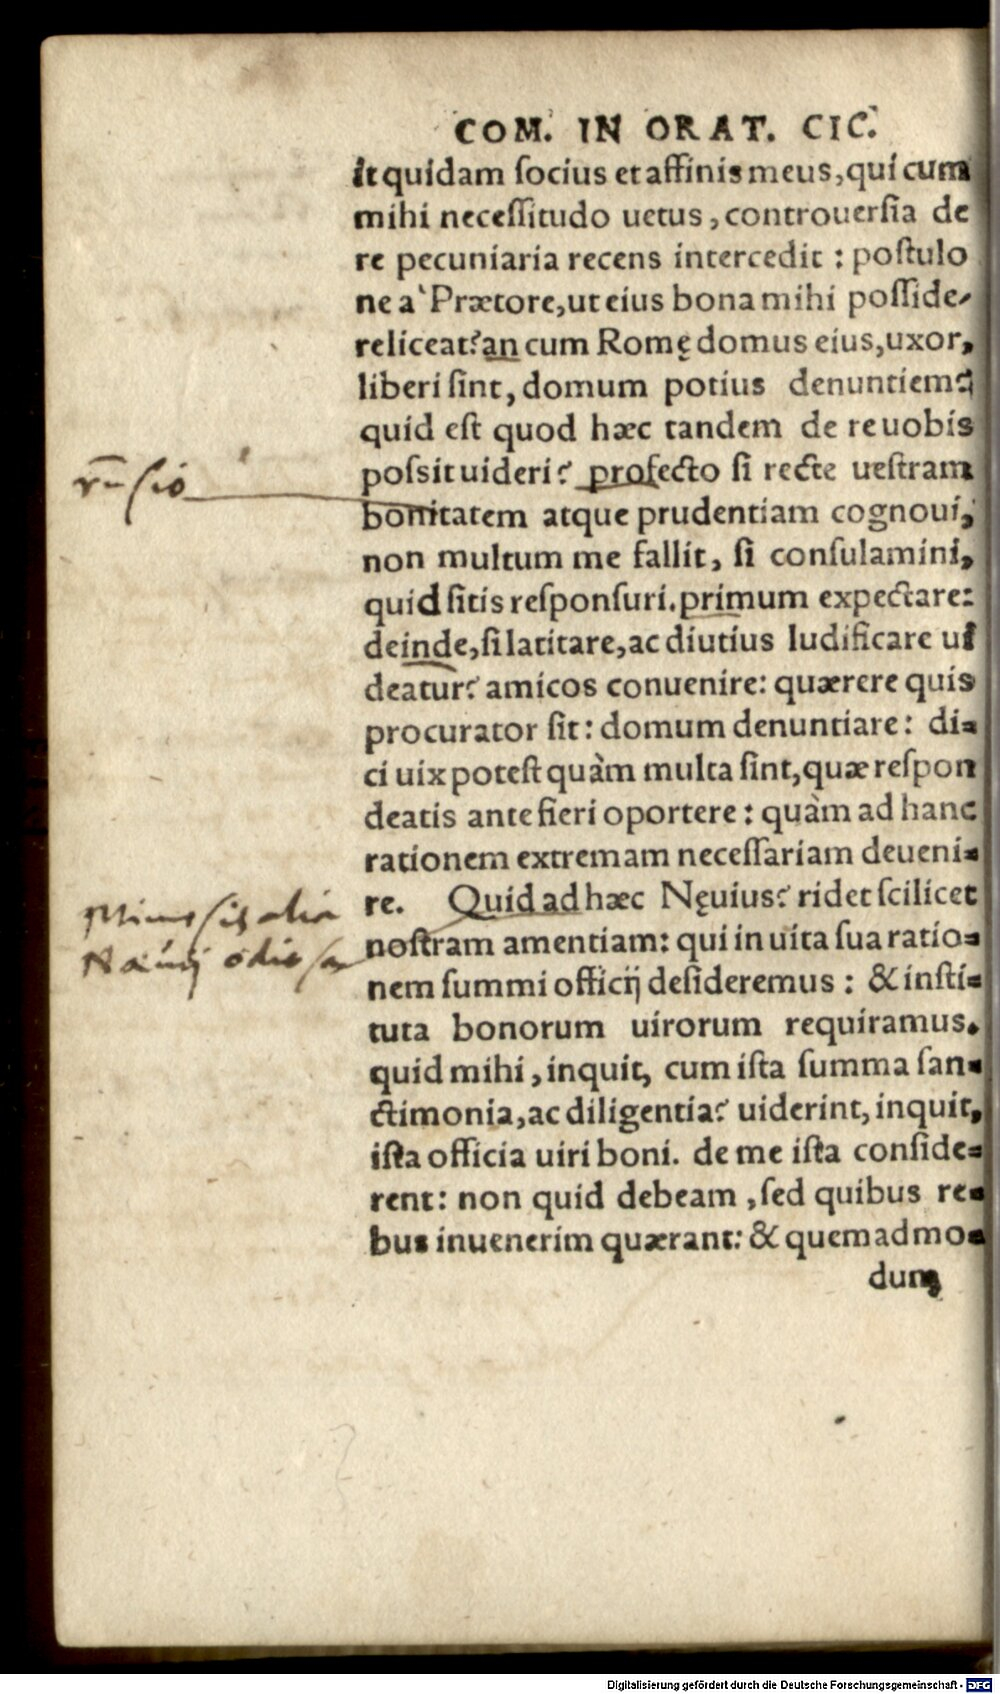 COM. IN ORAT. CIC.
it quidam socius et affinis meus, qui cum
mihi necessitudo uetus, controuersia de
re pecuniaria recens intercedit : postulo
ne à Prætore, ut eius bona mihi posside-
re liceat? an cum Romę domus eius, uxor,
liberi sint, domum potius denuntiem?
quid est quod hæc tandem de re uobis
possit uideri? profecto si recte uestram
bonitatem atque prudentiam cognoui,
non multum me fallit, si consulamini,
quid sitis responsuri. primum expectare:
deinde, si latitare, ac diutius ludificare ui
deatur? amicos conuenire: quærere quis
procurator sit: domum denuntiare: di=
ci uix potest quàm multa sint, quæ respon
deatis ante fieri oportere : quàm ad hanc
rationem extremam necessariam deueni=
re. Quid ad hæc Nęuius? ridet scilicet
nostram amentiam: qui in uita sua ratio=
nem summi officij desideremus : & insti=
tuta bonorum uirorum requiramus.
quid mihi, inquit, cum ista summa san=
ctimonia, ac diligentia? uiderint, inquit,
ista officia uiri boni. de me ista conside=
rent: non quid debeam, sed quibus re=
bus inuenerim quærant: & quemadmo=
dum
Digitalisierung gefördert durch die Deutsche Forschungsgemeinschaft - DFG